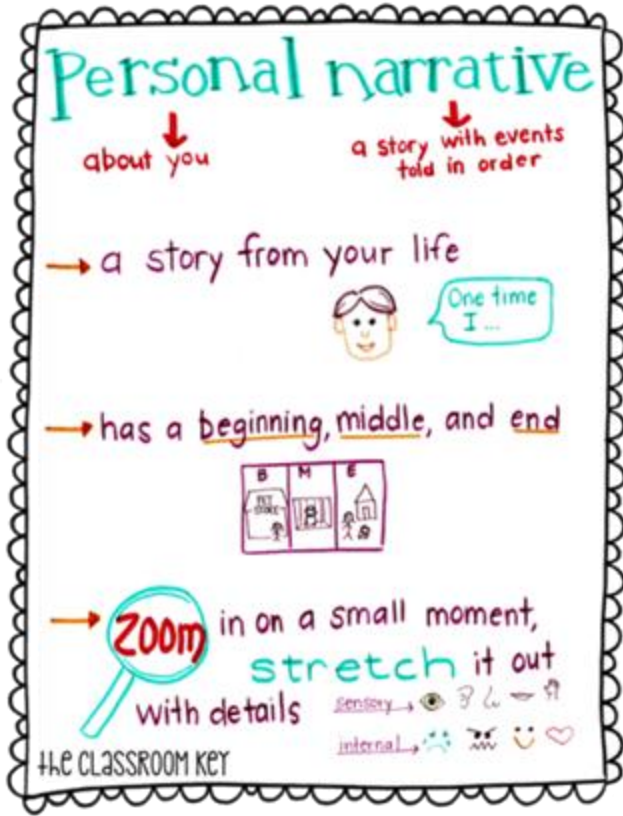 Personal narrative
about you
a story with events
told in order
a story from your life
One time
I ...
has a beginning, middle, and end
B M E
PET
STORE
ZOOM in on a small moment,
stretch it out
with details
sensory
internal
the CLASSROOM KEY